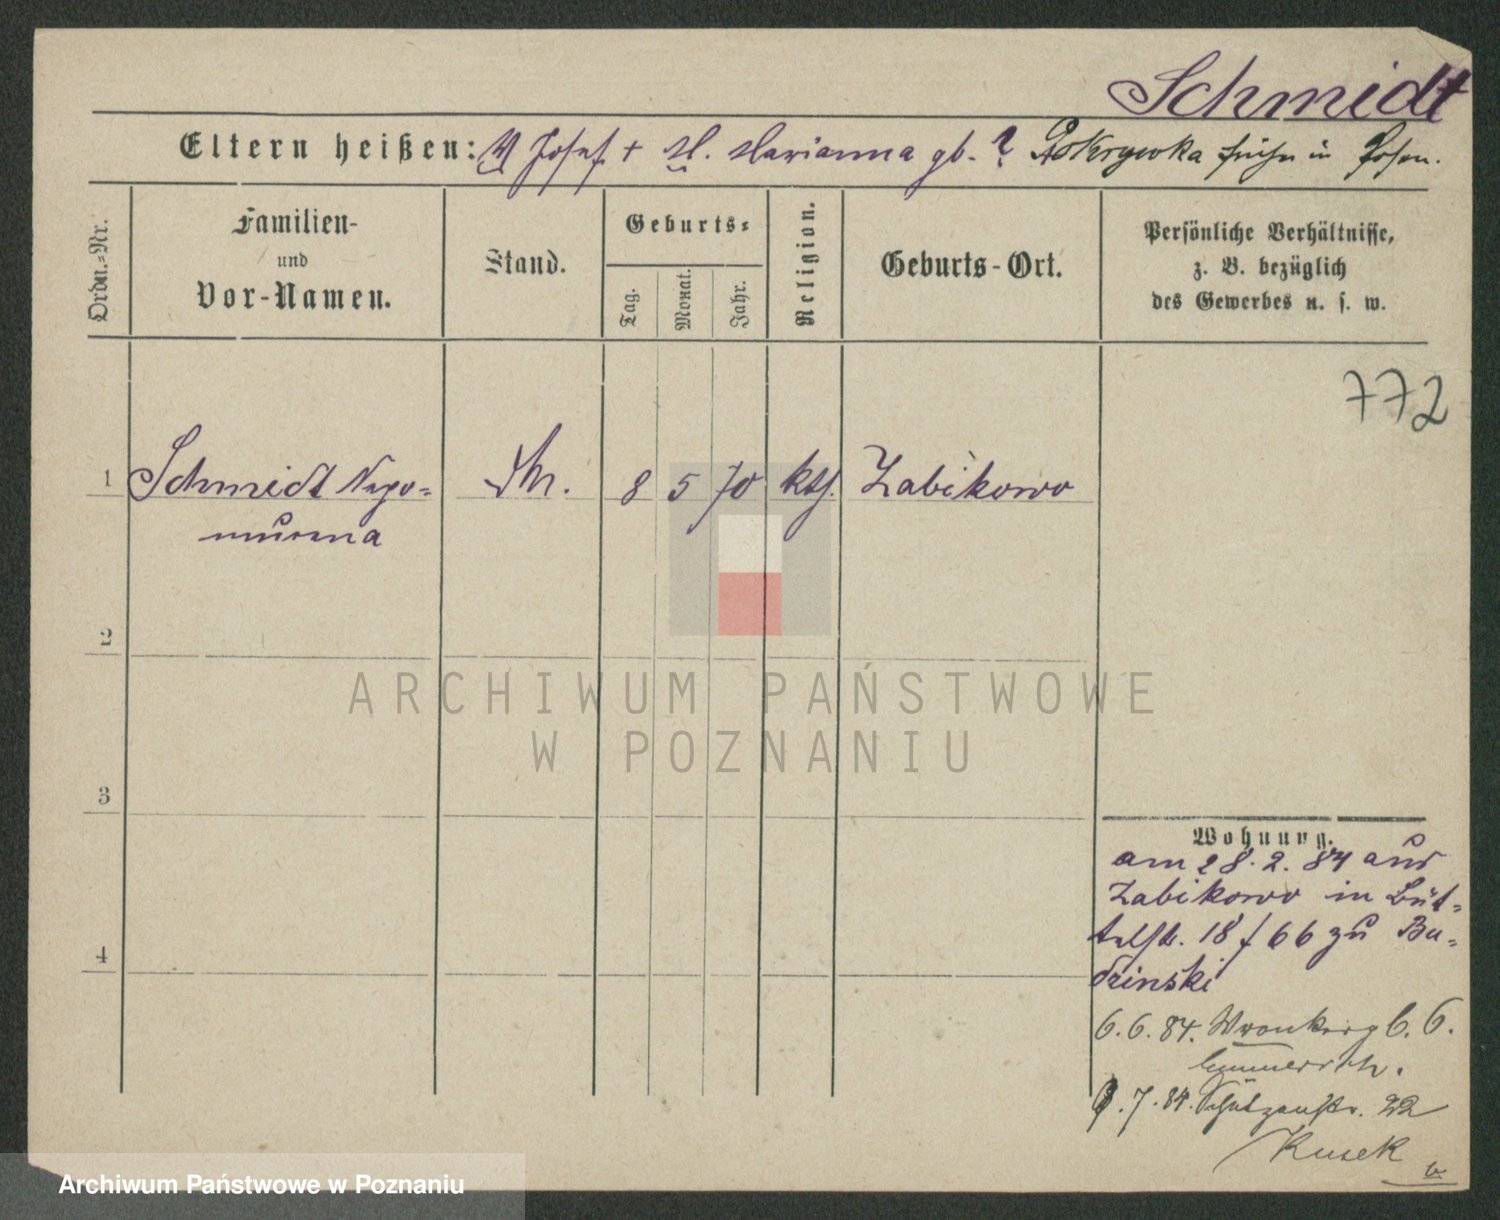 Schmidt
Eltern heißen: V. Josef + M. Marianna gb. ? Pokrzywka früher in Posen.
Ordn.=Nr.
Familien-
und
Vor-Namen.
Stand.
Geburts=
Tag.
Monat.
Jahr.
Religion.
Geburts-Ort.
Persönliche Verhältnisse,
z. B. bezüglich
des Gewerbes u. s. w.
772
1 Schmidt Nepo= 8 5 70 kth. Zabikowo
mucena
2
3
4
Wohnung.
am 28.2.84 aus
Zabikowo in Büt=
telstr. 18 / 66 zu Bu=
dzinski
6.6.84. Wronkerg 6.
7.84. Schützenstr. 22
Kusek
ARCHIWUM PAŃSTWOWE
W POZNANIU
Archiwum Państwowe w Poznaniu